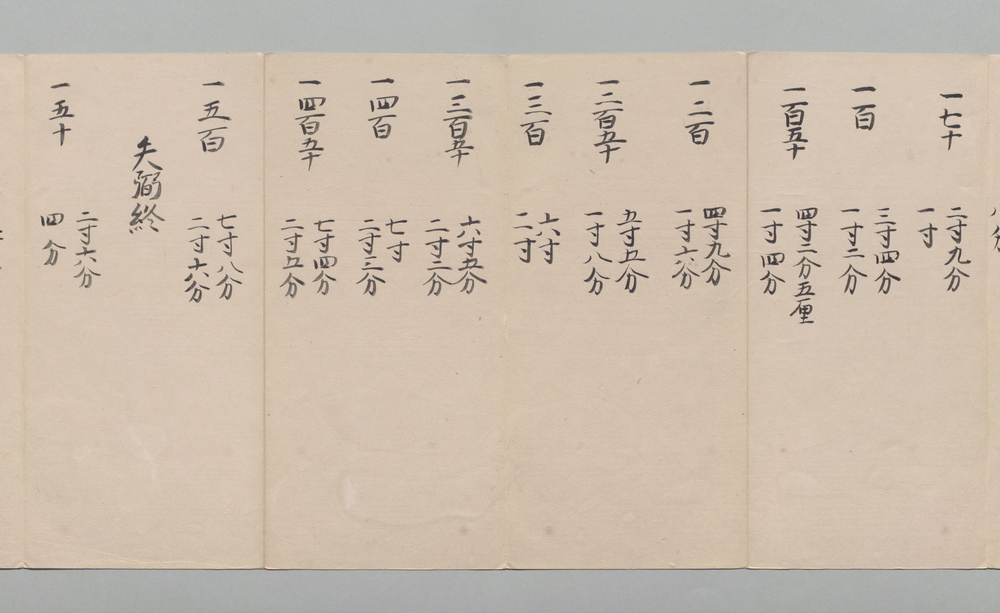 一七十
二寸九分
一寸
一百
三寸四分
一寸二分
一百五十
四寸二分五厘
一寸四分
一二百
四寸九分
一寸六分
一二百五十
五寸五分
一寸八分
一三百
六寸
二寸
一三百五十
六寸五分
二寸二分
一四百
七寸
二寸三分
一四百五十
七寸四分
二寸五分
一五百
七寸八分
二寸六分
矢 終
一五十
二寸六分
四分